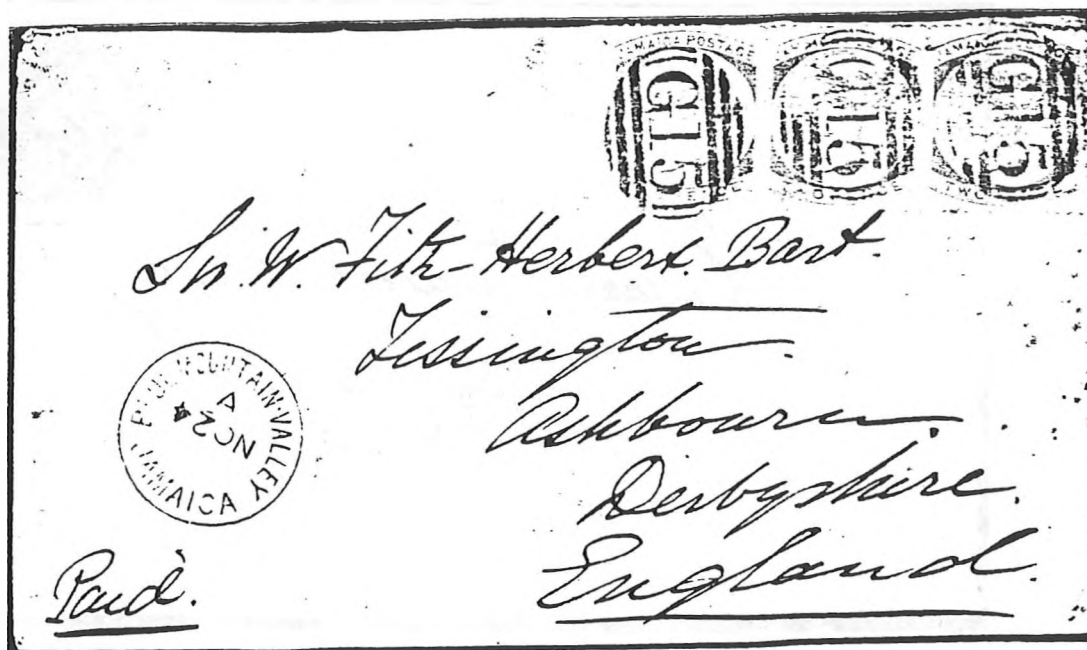 JAMAICA POSTAGE JAMAICA
G15 G15 G15
TWO
Sir. W. Fitz-Herbert. Bart.
Tissington
Ashbourn.
Derbyshire.
England.
BLUE MOUNTAIN-VALLEY
A
NC24
JAMAICA
Paid.